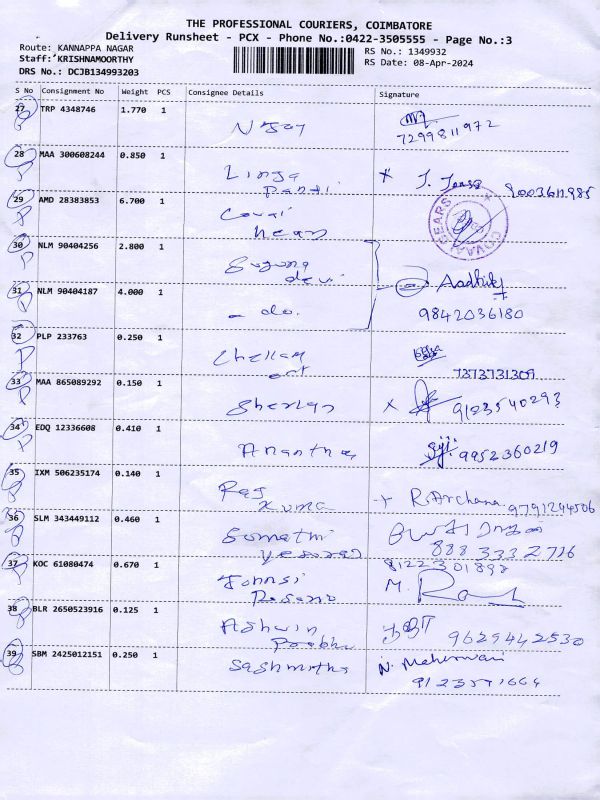 THE PROFESSIONAL COURIERS, COIMBATORE
Delivery Runsheet - PCX - Phone No.:0422-3505555 - Page No.:3
Route: KANNAPPA NAGAR
RS No.: 1349932
Staff: KRISHNAMOORTHY
RS Date: 08-Apr-2024
DRS No.: DCJB134993203
S No Consignment No Weight PCS Consignee Details Signature
27 TRP 4348746 1.770 1
7299811972
28 MAA 300608244 0.850 1 Linga
29 AMD 28383853 6.700 1 Covai
COVAI GEARS
30 NLM 90404256 2.800 1 Suguna
devi
31 NLM 90404187 4.000 1 - do.
9842036180
32 PLP 233763 0.250 1 Chellam
7373731309
33 MAA 865089292 0.150 1
9123540293
34 EDQ 12336608 0.410 1 Anantha
9952360219
35 IXM 506235174 0.140 1 Raj
Kuma R.Archana 9791244506
36 SLM 343449112 0.460 1 Sumathi
888 333 2716
37 KOC 61080474 0.670 1 Johnsi 8122301898
38 BLR 2650523916 0.125 1 Ashwin
Prabhu 9629442530
39 SBM 2425012151 0.250 1 Sashmitha N. Maheswari